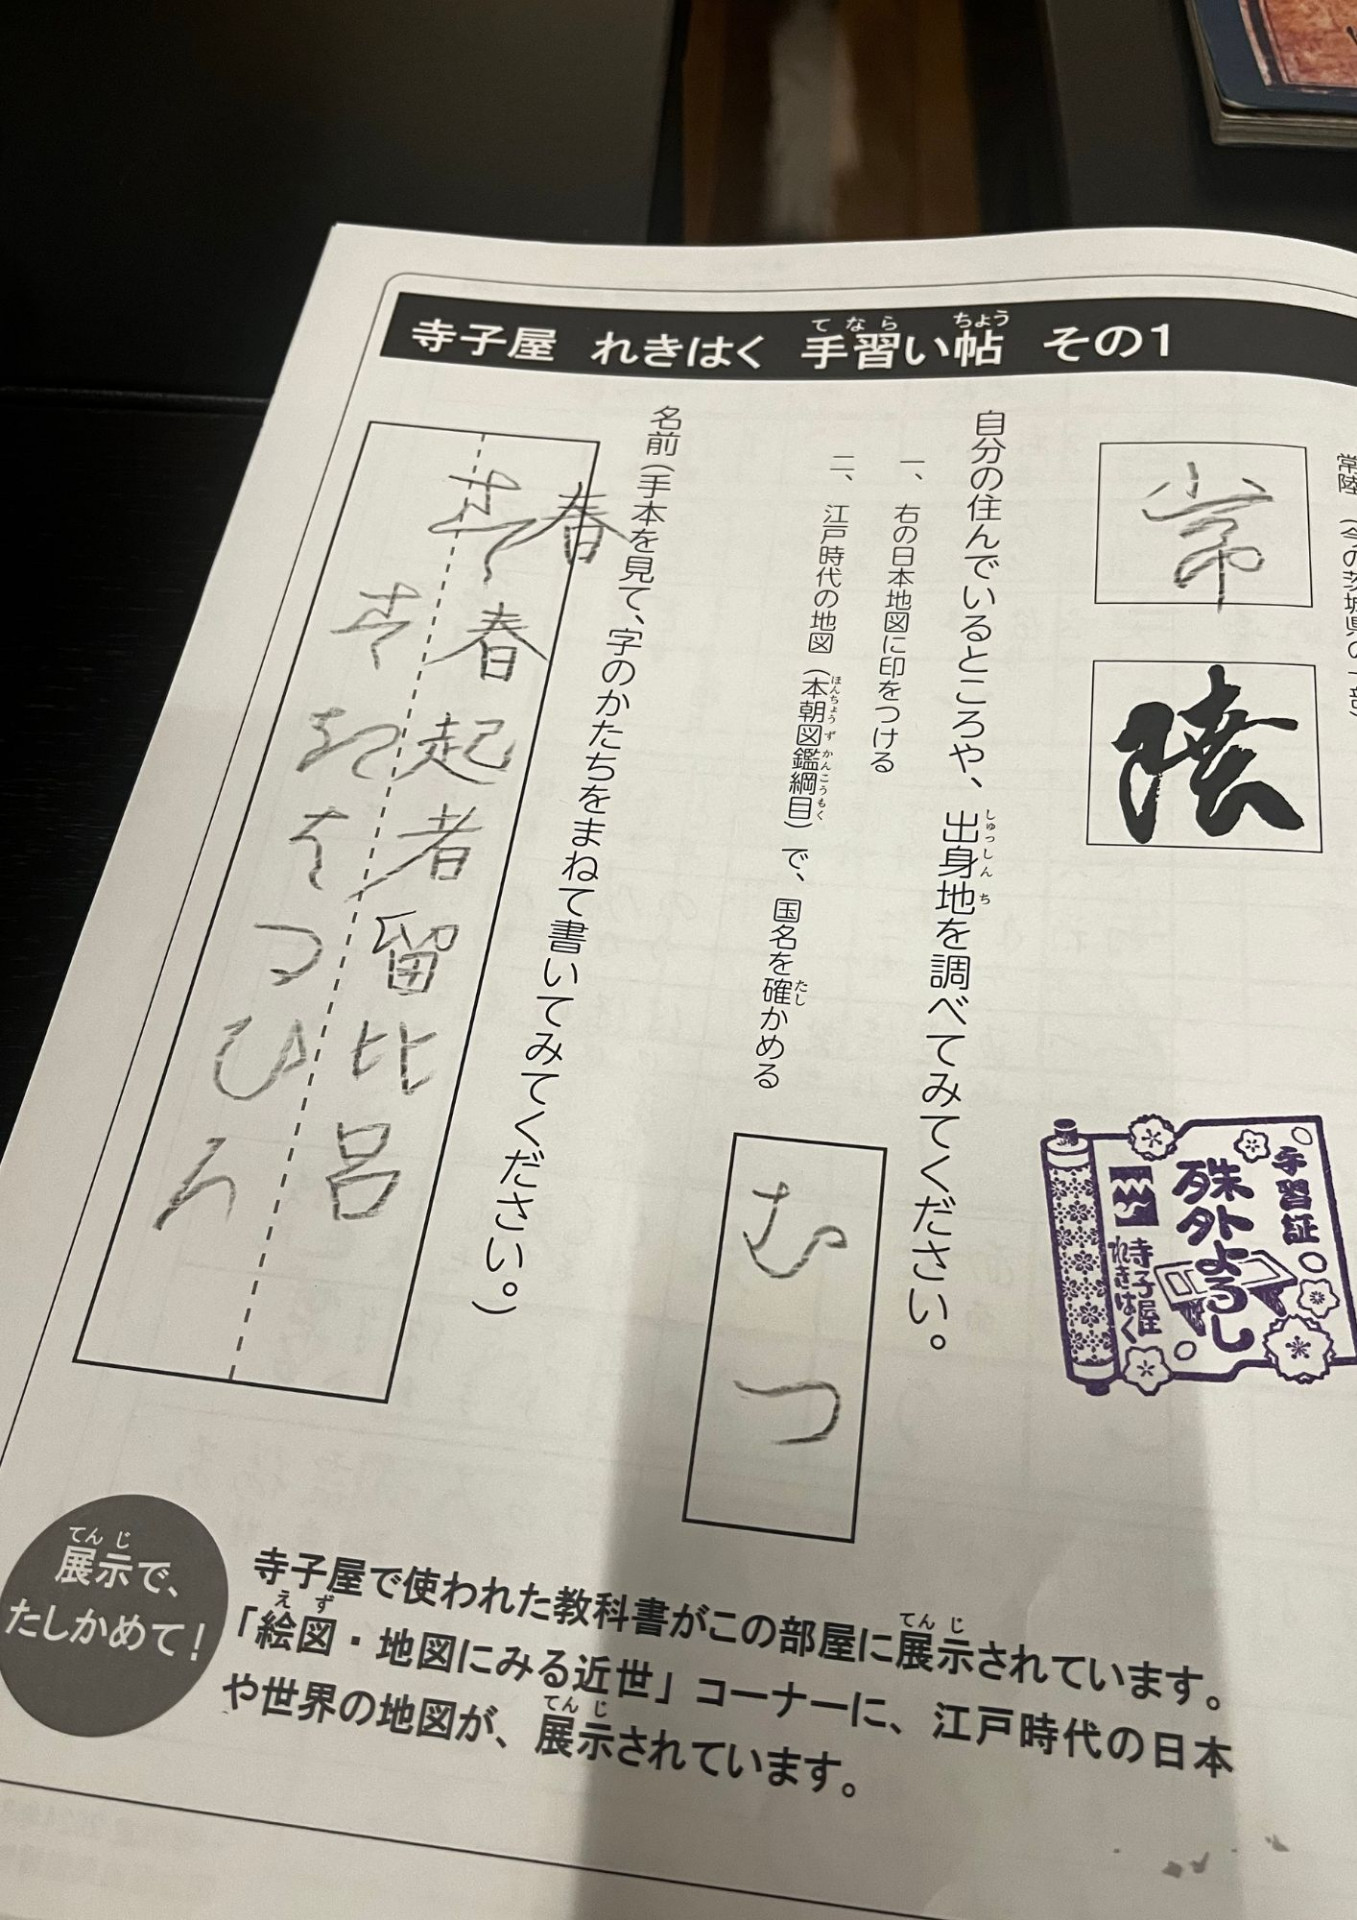 寺子屋 れきはく 手習い帖 その1
てなら ちょう
常
陸
自分の住んでいるところや、出身地を調べてみてください。
しゅっしんち
一、右の日本地図に印をつける
二、江戸時代の地図(本朝図鑑綱目)で、国名を確かめる
ほんちょうずかんこうもく
たし
むつ
名前(手本を見て、字のかたちをまねて書いてみてください。)
春
春起者留比呂
つひろ
手習証
殊外よろし
寺子屋
れきはく
展示で、
てんじ
たしかめて!
寺子屋で使われた教科書がこの部屋に展示されています。
てんじ
「絵図・地図にみる近世」コーナーに、江戸時代の日本
えず
や世界の地図が、展示されています。
てんじ